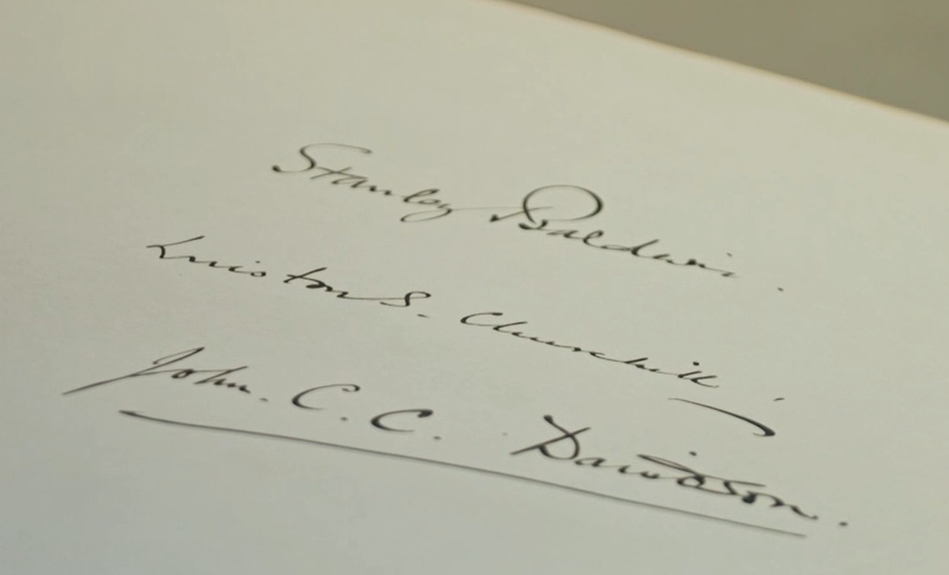 Stanley Baldwin.
Winston S. Churchill
John. C. C. Davidson.